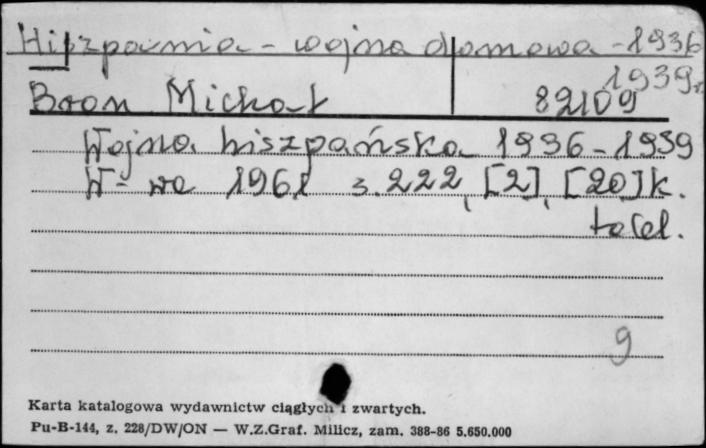 Hiszpania - wojna domowa - 1936
1939r.
Bron Michał 82109
Wojna hiszpańska 1936-1939
W-wa 1961 s. 222, [2], [20] k.
tabl.
9
Karta katalogowa wydawnictw ciągłych i zwartych.
Pu-B-144, z. 228/DW/ON — W.Z.Graf. Milicz, zam. 388-86 5.650.000